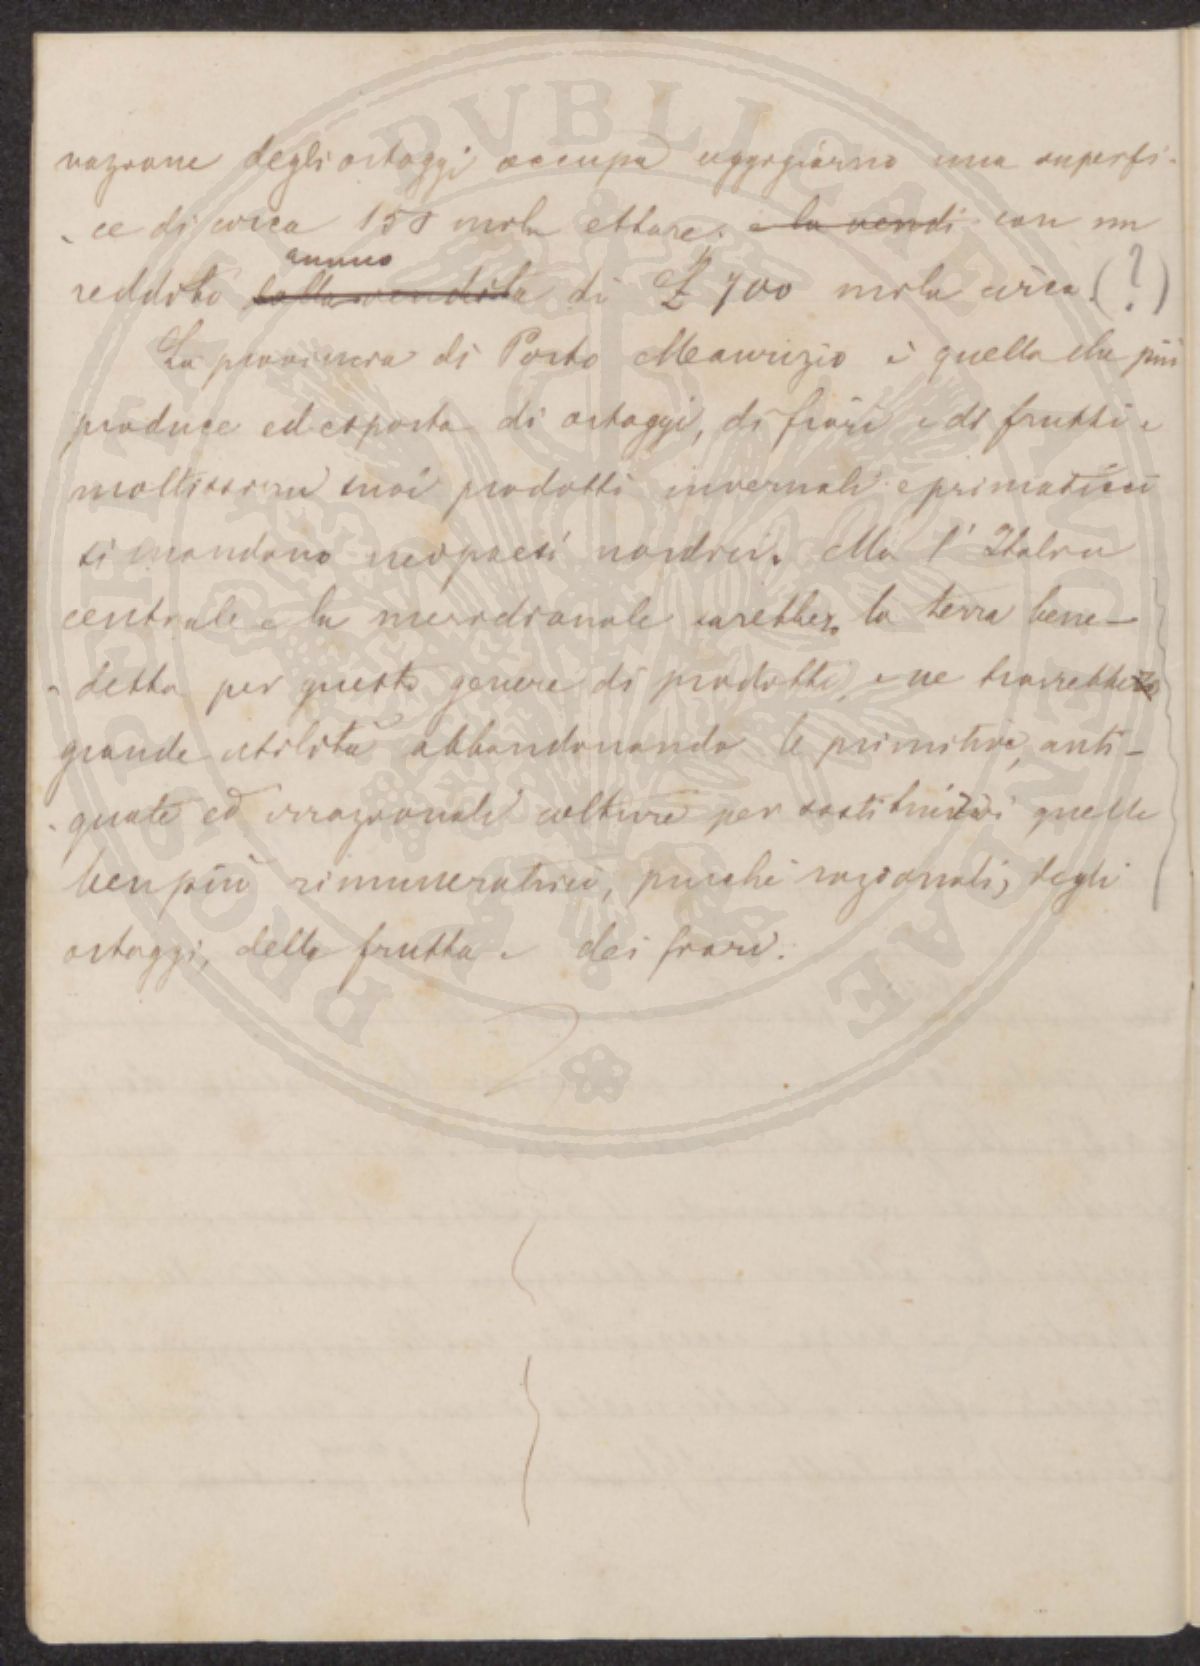 vazione degli ortaggi occupa oggigiorno una superfi-
ce di circa 150 mila ettare. e la vendi con un
annuo
reddito dalla vendita di £ 700 mila circa. (?)
La provincia di Porto Maurizio è quella che più
produce ed esporta di ortaggi, di fiori e di frutti e
moltissimi suoi prodotti invernali e primaticci
si mandano nei paesi nordici. Ma l'Italia
centrale e la meridionale sarebbe la terra bene-
detta per questo genere di prodotti, e ne trarrebbe
grande utilità abbandonando le primitive, anti-
quate ed irrazionali colture per sostituirvi quelle
ben più rimuneratrici, purchè razionali, degli
ortaggi, delle frutta e dei fiori.